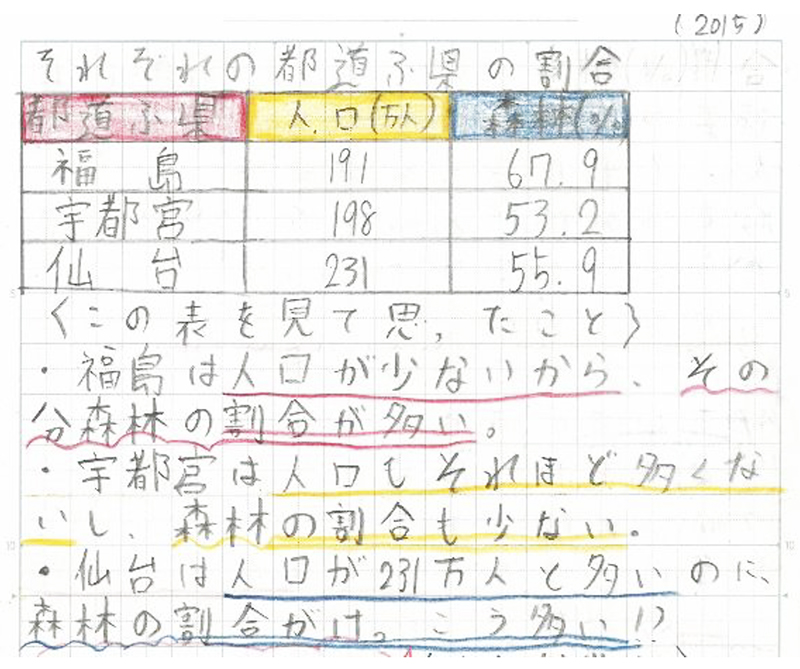 (2015)
それぞれの都道ふ県の割合
都道ふ県 人口(万人) 森林(%)
福島 191 67.9
宇都宮 198 53.2
仙台 231 55.9
〈この表を見て思ったこと〉
・福島は人口が少ないから、その
分森林の割合が多い。
・宇都宮は人口もそれほど多くな
いし、森林の割合も少ない。
・仙台は人口が231万人と多いのに、
森林の割合がけっこう多い!?